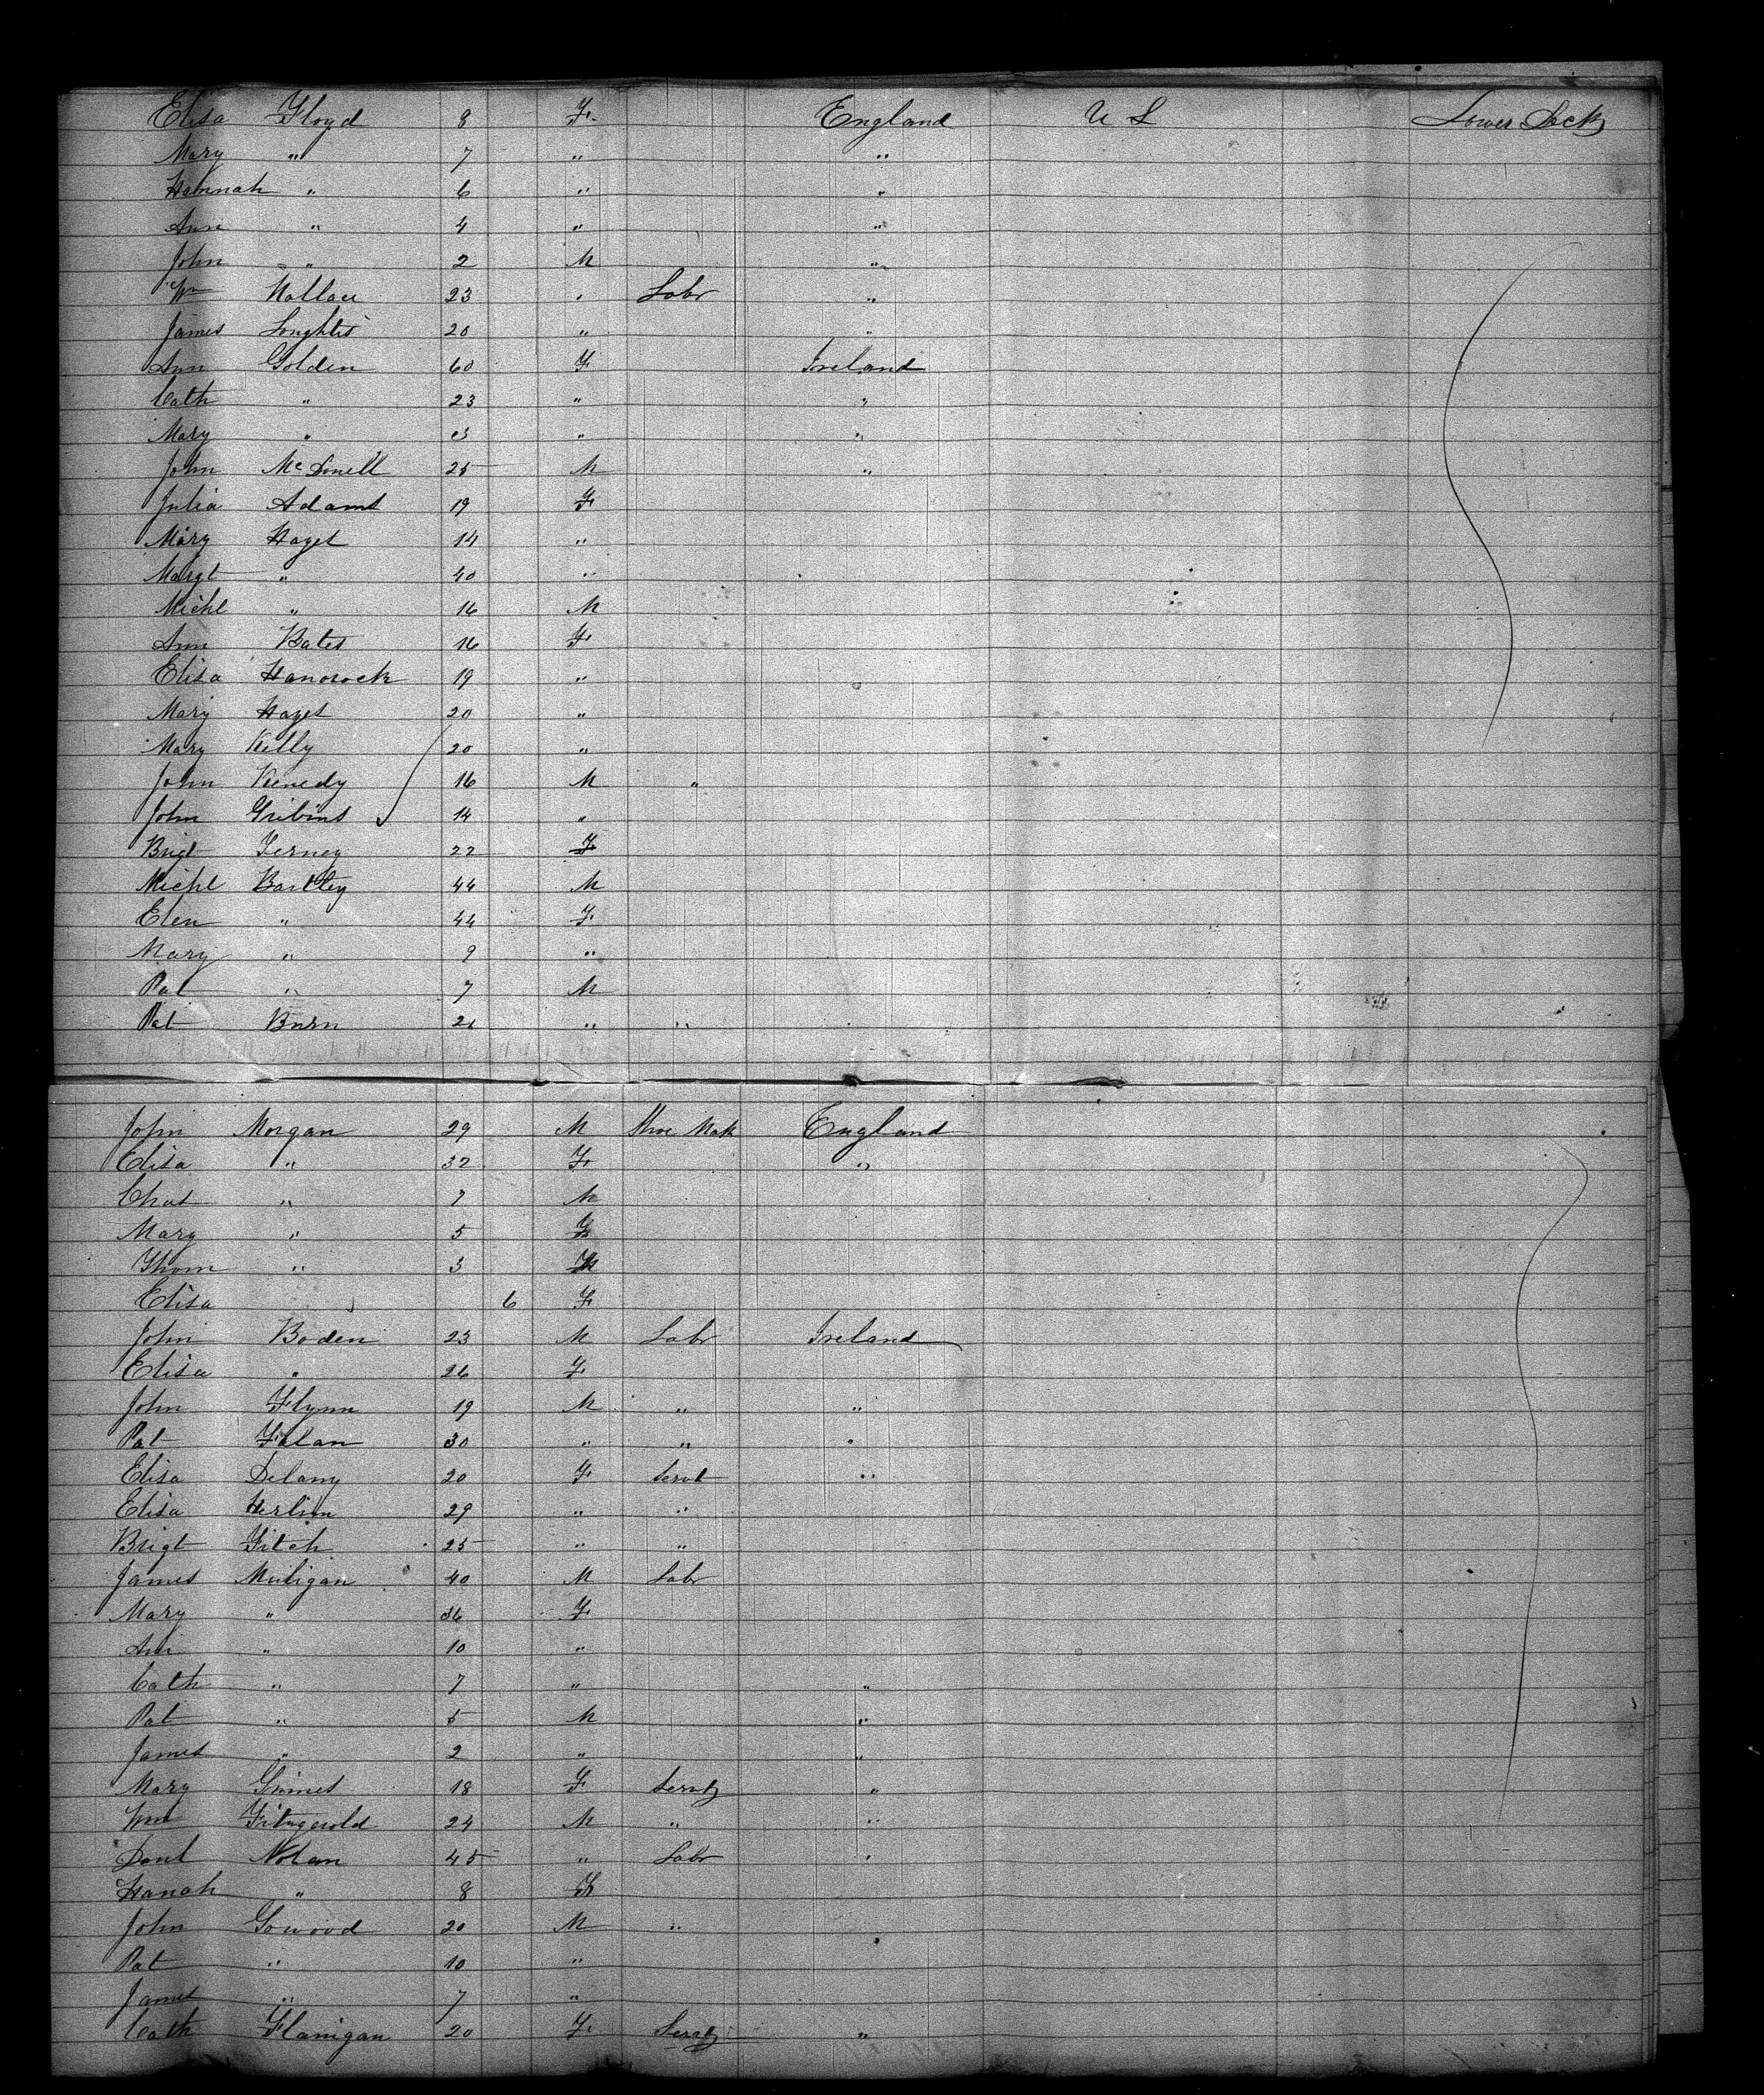 Elisa Floyd 8 F. England U S Lower Deck
Mary " 7 " "
Hannah " 6 " "
Ann " 4 " "
John " 2 M "
Wm Wallace 23 " Labr "
James 20 " "
Ann Golden 60 F Ireland
Cath " 23 " "
Mary " " "
John 25 M "
Julia Adams 19 F
Mary Hayes 14 "
Margt " 40 "
Michl " 16 M
Ann Bates 16 F
Elisa Hancock 19 "
Mary Hayes 20 "
Mary Kelly 20 "
John Kenedy 16 M "
John Gribins 14 "
Brigt Ferney 22 F
Michl Bartley 44 M
Elen " 44 F
Mary " 9 "
Pat " 7 M
Pat Burn " "
John Morgan 29 M Shoe Mak England
Elisa " 32 F "
Chas " 7 M
Mary " 5 F
Thom " 3 M
Elisa 6 F
John Boden 23 M Labr Ireland
Elisa " 26 F
John Flynn 19 M " "
Pat 30 " " "
Elisa Delany 20 F Servt "
Elisa 29 " "
Brigt Fitch 25 " "
James Muligan 40 M Labr
Mary " 36 F
Ann " 10 "
Cath " 7 " "
Pat " 5 M "
James " 2 " "
Mary Grimes 18 F Servt "
Wm Fitzgerold 24 M " "
Danl Nolan 45 " Labr "
Hanah " 8 F
John Gowood 20 M "
Pat " 10 "
James " 7 "
Cath Flanigan 20 F Servt "